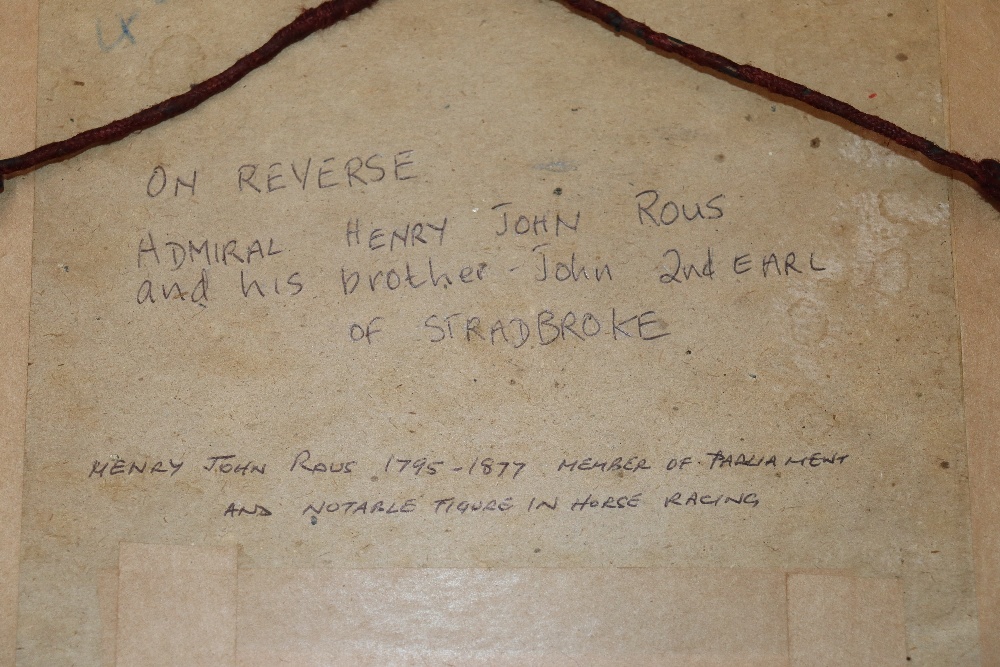 LX
ON REVERSE
ADMIRAL HENRY JOHN ROUS
and his brother - John 2nd EARL
OF STRADBROKE
HENRY JOHN ROUS 1795-1877 MEMBER OF PARLIAMENT
AND NOTABLE FIGURE IN HORSE RACING